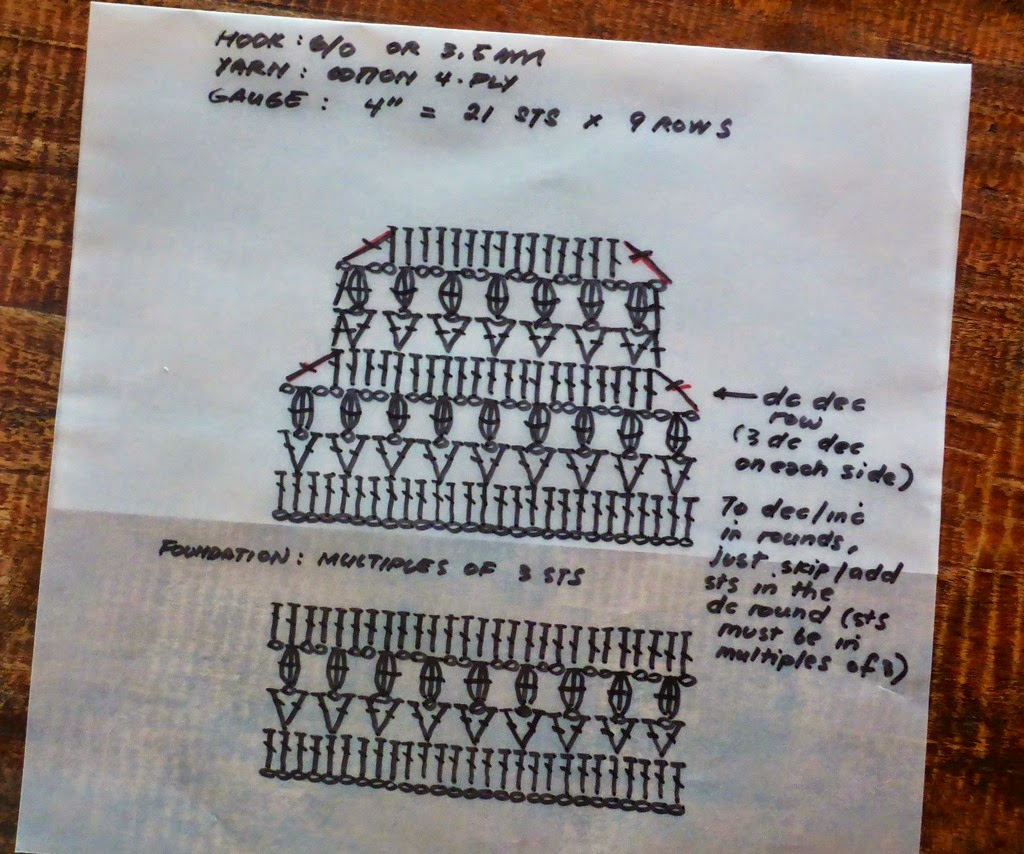 HOOK: 6/0 OR 3.5 MM
YARN: COTTON 4-PLY
GAUGE: 4" = 21 STS x 9 ROWS
dc dec
row
(3 dc dec
on each side)
To dec/inc
in rounds,
just skip/add
sts in the
dc round (sts
must be in
multiples of 3)
FOUNDATION: MULTIPLES OF 3 STS